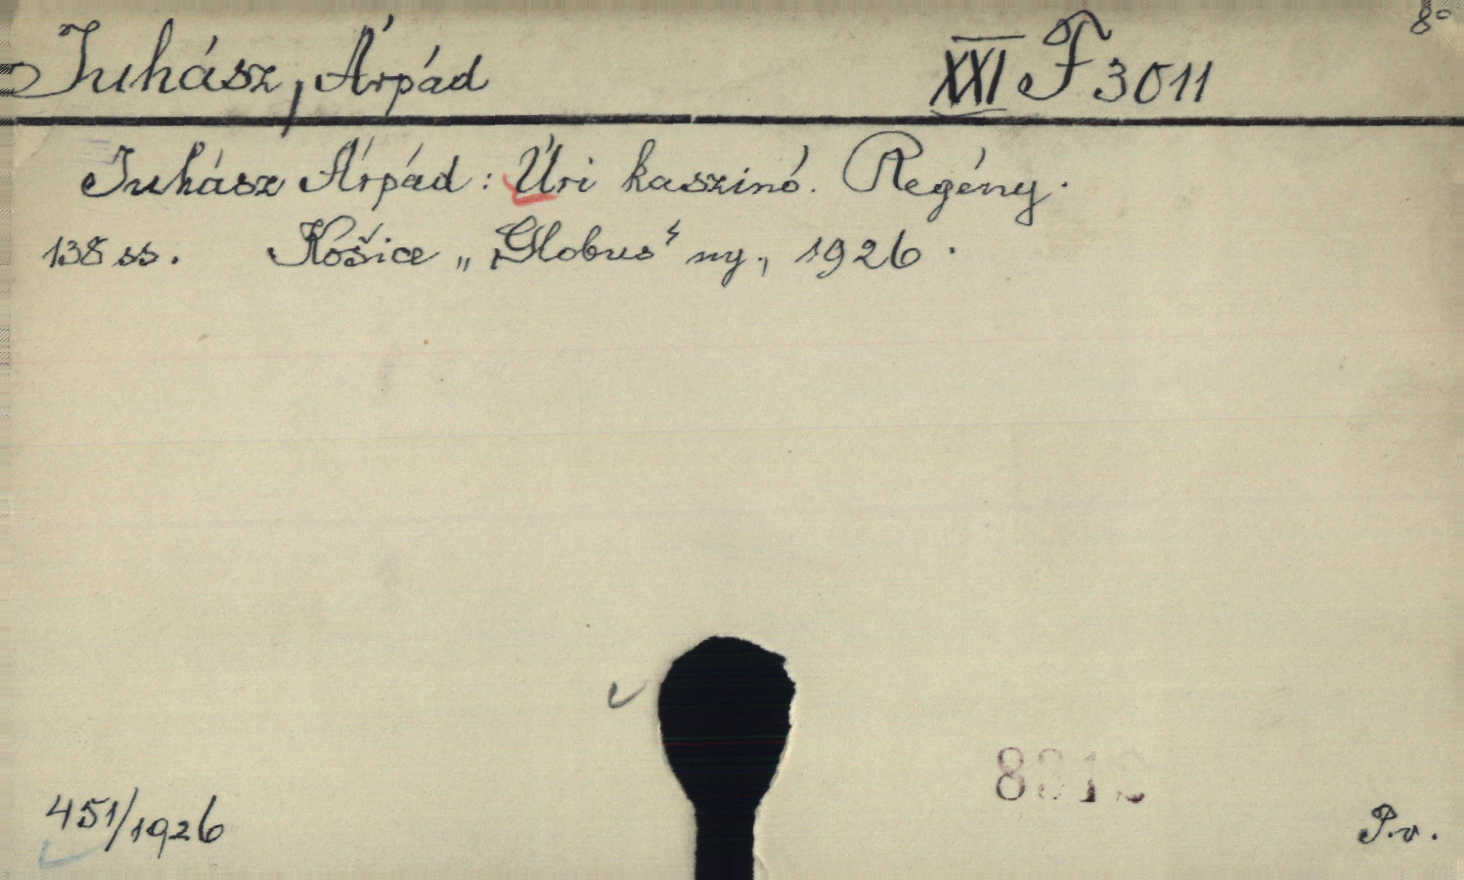 8°
Juhász, Árpád XXI F 3011
Juhász Árpád: Úri kaszinó. Regény.
138 ss. Košice „Globus“ ny., 1926.
451/1926
P.v.